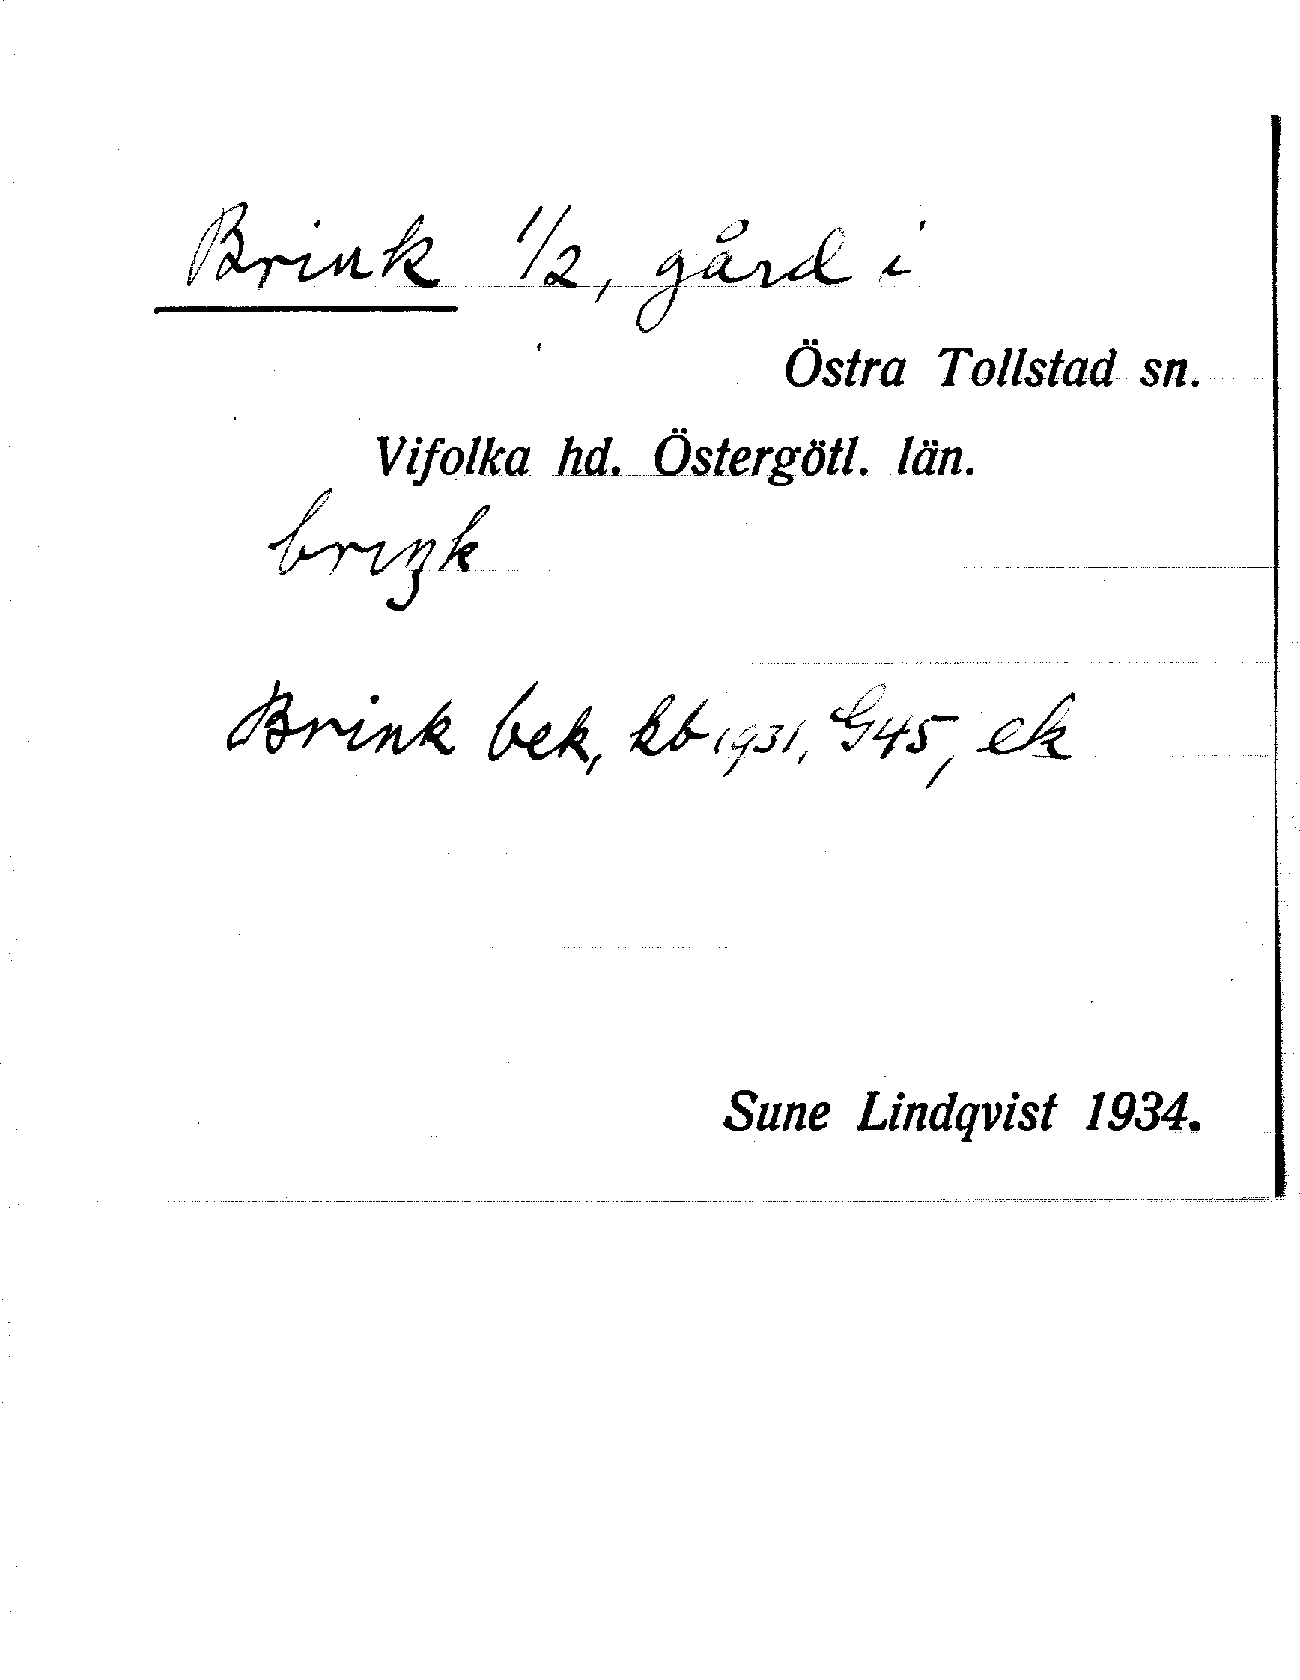 Brink 1/2, gård i
Östra Tollstad sn.
Vifolka hd. Östergötl. län.
briŋk
Brink bek, kb 1931, G45, ek
Sune Lindqvist 1934.